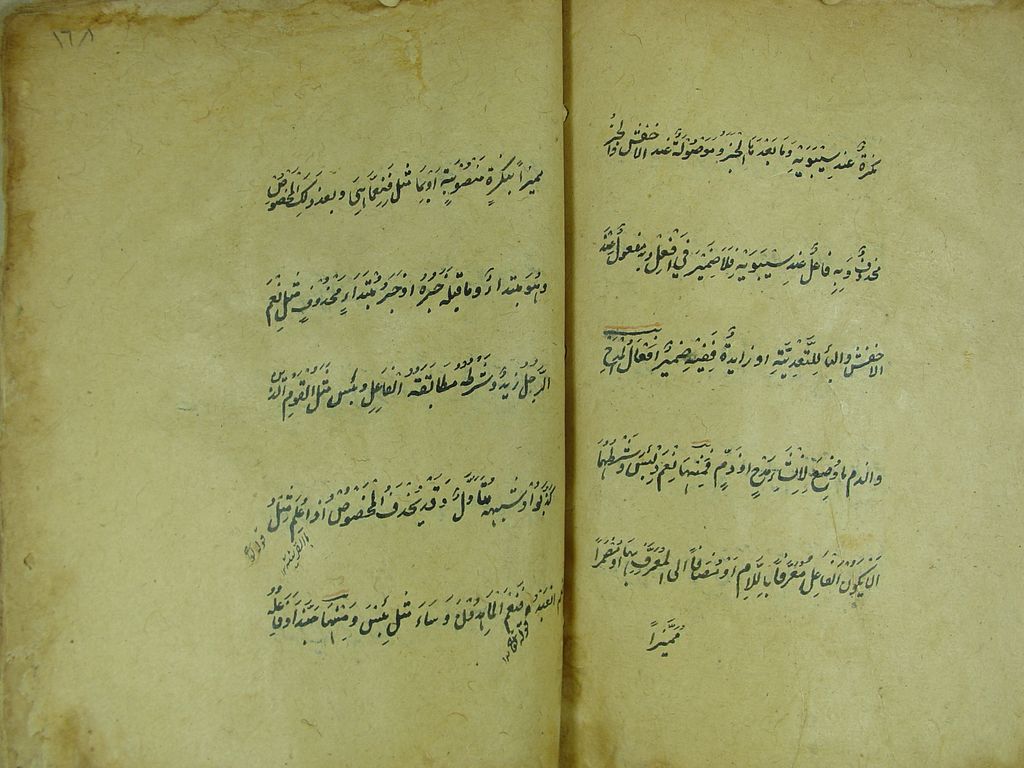 نكرة عند سيبويه وما بعدها الخبر وموصولة عند الاخفش والخبر
محذوف وبه فاعل عند سيبويه فلا ضمير في افعل وبه مفعول عند
الاخفش والباء للتعدية او زايدة ففيه ضمير افعال المدح
والذم ما وضع لانشاء مدح او ذم فمنها نعم وبئس وشرطهما
ان يكون الفاعل معرفا باللام او مضافا الى المعرف بها او مضمرا
مميزا
١٦٨
مميزا بنكرة منصوبة او بما مثل فنعما هى وبعد ذلك المخصوص
وهو مبتداء وما قبله خبره او خبر مبتداء محذوف مثل نعم
الرجل زيد وشرطه مطابقة الفاعل وبئس مثل القوم الذين
كذبوا وشبهه متاول وقد يحذف المخصوص اذا علم مثل
نعم العبد و فنعم الماهدون وساء مثل بئس ومنها حبذا وفاعله